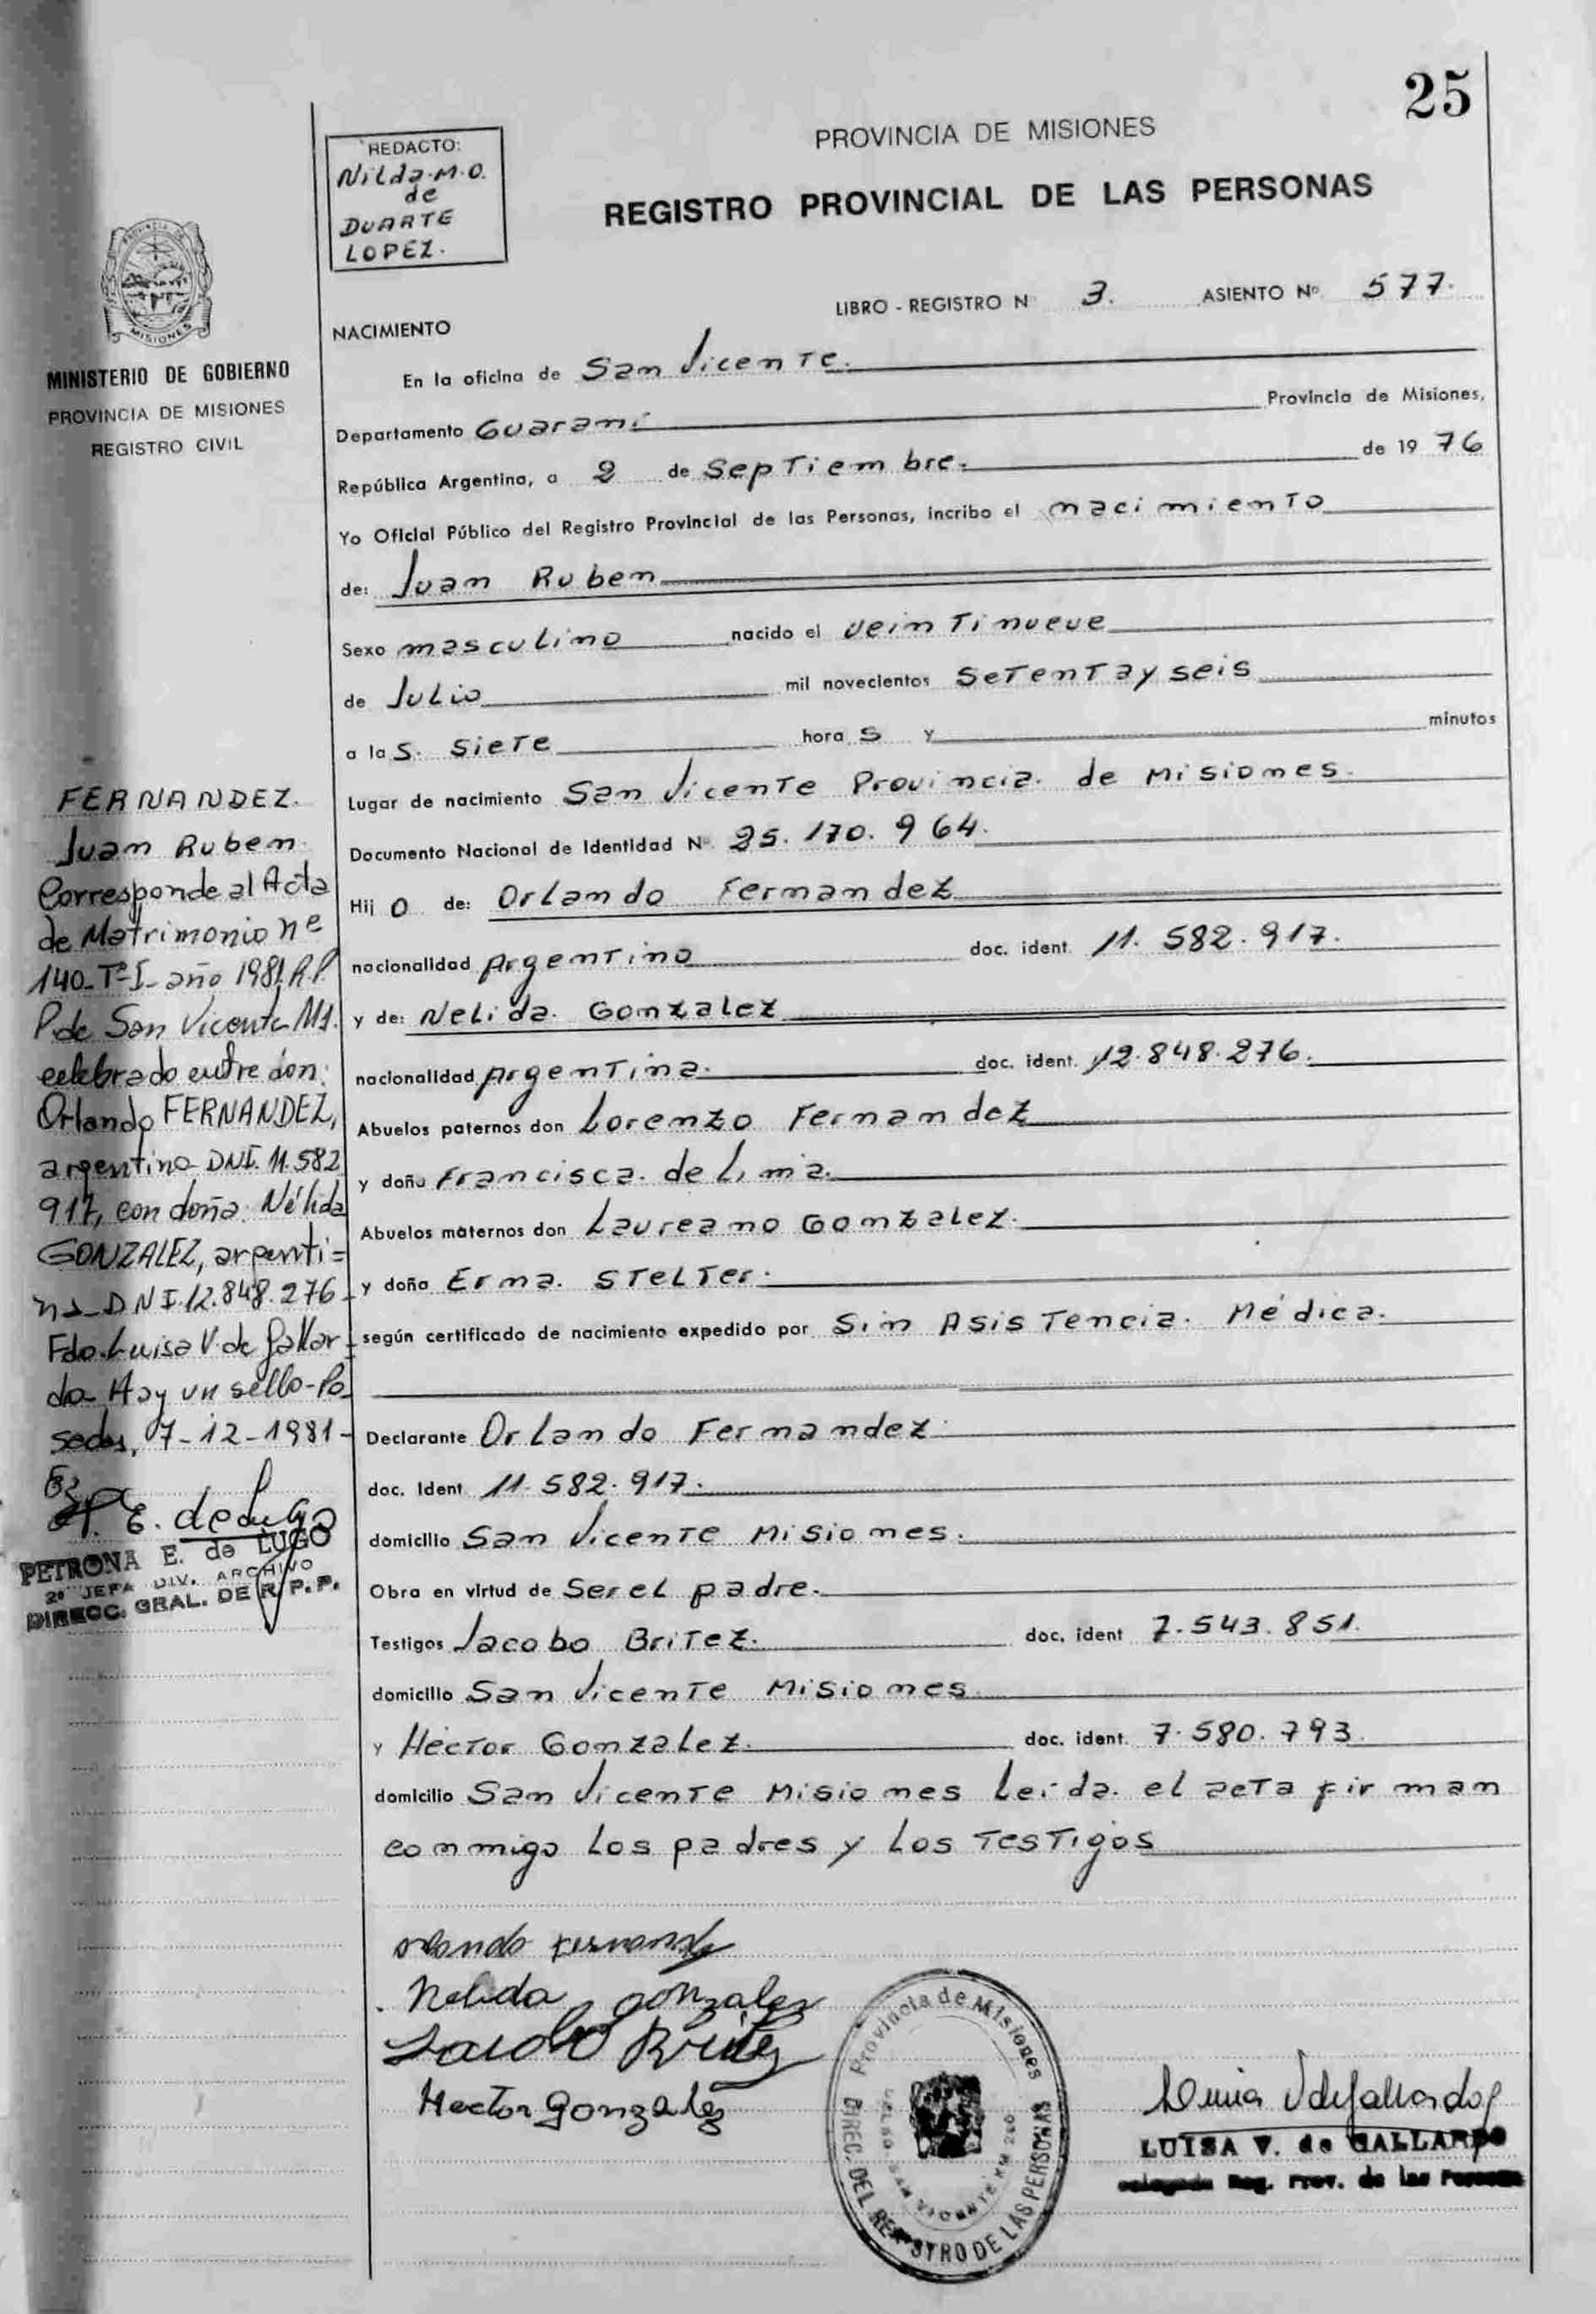 25
PROVINCIA DE MISIONES
REGISTRO PROVINCIAL DE LAS PERSONAS
REDACTO:
Nilda.M.O.
de
DUARTE
LOPEZ.
LIBRO - REGISTRO N° 3. ASIENTO N° 577.
NACIMIENTO
En la oficina de San Vicente.
Departamento Guaraní Provincia de Misiones,
República Argentina, a 2 de Septiembre. de 1976
Yo Oficial Público del Registro Provincial de las Personas, incribo el nacimiento
de: Juan Ruben
Sexo masculino nacido el veintinueve
de Julio mil novecientos setenta y seis
a las. siete horas y minutos
Lugar de nacimiento San Vicente Provincia. de Misiones.
Documento Nacional de Identidad N° 25.170.964.
Hijo de: Orlando Fernandez
nacionalidad Argentino doc. ident. 11.582.917.
y de: Nelida. Gonzalez
nacionalidad Argentina. doc. ident. 12.848.276.
Abuelos paternos don Lorenzo Fernandez
y doña Francisca. de Lima.
Abuelos maternos don Laureano Gonzalez.
y doña Erma. Stelter.
según certificado de nacimiento expedido por Sin Asistencia. Médica.
Declarante Orlando Fernandez.
doc. Ident 11.582.917.
domicilio San Vicente Misiones.
Obra en virtud de Ser el padre.
Testigos Jacobo Britez. doc. ident 7.543.851.
domicilio San Vicente Misiones.
y Héctor Gonzalez. doc. ident. 7.580.793.
domicilio San Vicente Misiones Leída. el acta firman
conmigo los padres y los testigos
Orlando Fernandez
Nelida gonzalez
Jacobo Britez
Hector gonzalez
Provincia de Misiones
DIREC. DEL REGISTRO DE LAS PERSONAS
SAN VICENTE KM 260
Luisa V de Gallardo
LUISA V. de GALLARDO
Reg. Prov. de las Personas
PROVINCIA DE
MISIONES
MINISTERIO DE GOBIERNO
PROVINCIA DE MISIONES
REGISTRO CIVIL
FERNANDEZ.
Juan Ruben.
Corresponde al Acta
de Matrimonio nº
140-Tº I- año 1981. R.P.
P. de San Vicente Ms.
celebrado entre don:
Orlando FERNANDEZ,
argentino DNI. 11.582
917, con doña: Nélida
GONZALEZ, argenti=
na - DNI. 12.848.276 -
Fdo. Luisa V. de Gallar=
do- Hay un sello-Po
sadas, 07-12-1981-
E. de Lugo
PETRONA E. de LUGO
2ª JEFA DIV. ARCHIVO
DIRECC. GRAL. DE R.P.P.